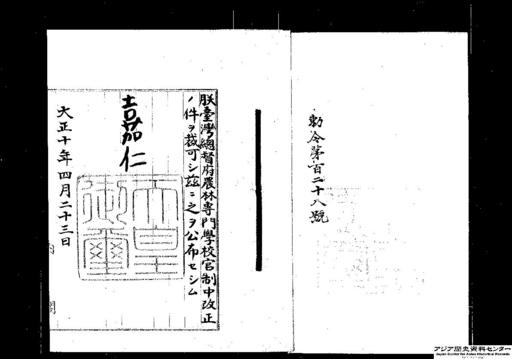 勅令第百二十八號
朕臺灣總督府農林專門學校官制中改正
ノ件ヲ裁可シ茲ニ之ヲ公布セシム
嘉仁
天皇御璽
大正十年四月二十三日
内閣
アジア歴史資料センター
Japan Center for Asian Historical Records